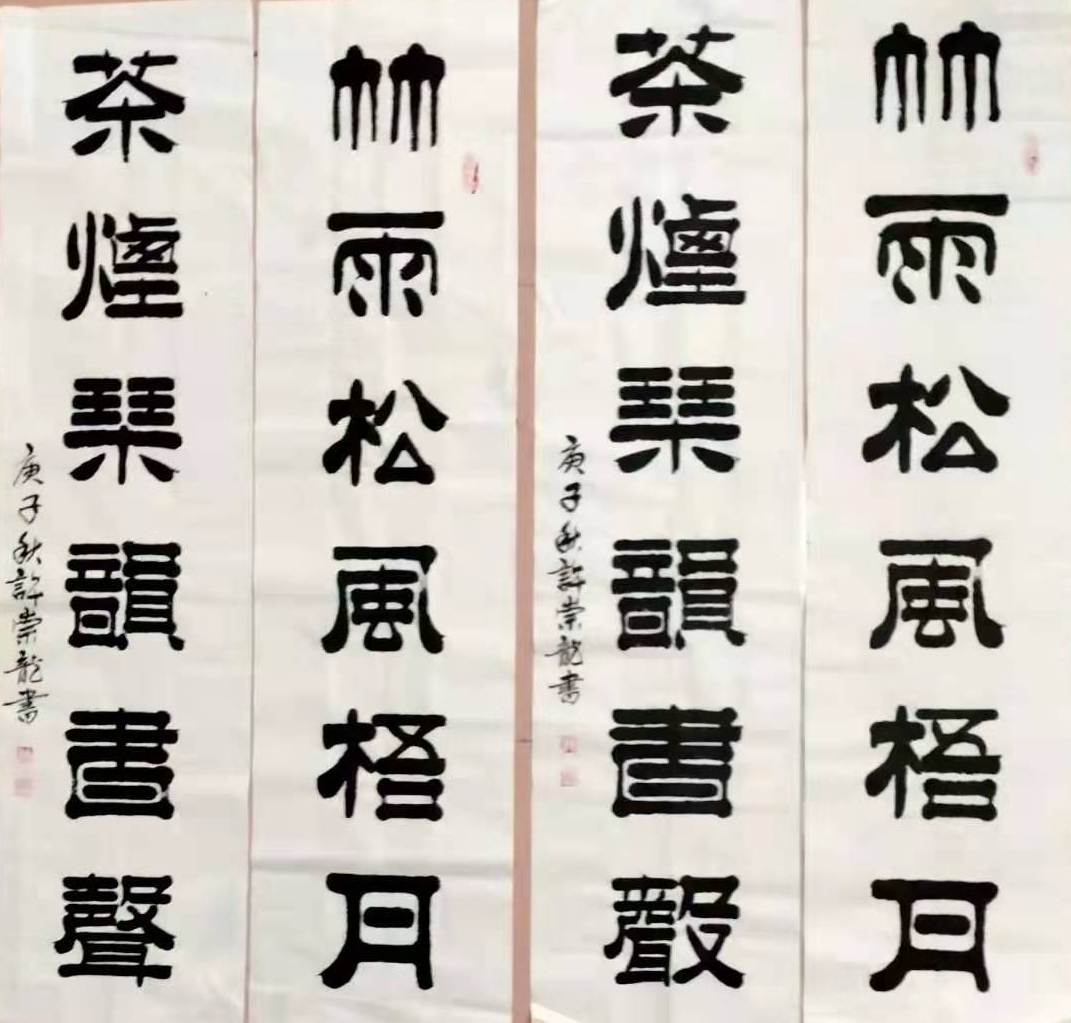 竹雨松風梧月
茶煙琴韻書聲
庚子秋許崇龍書
竹雨松風梧月
茶煙琴韻書聲
庚子秋許崇龍書